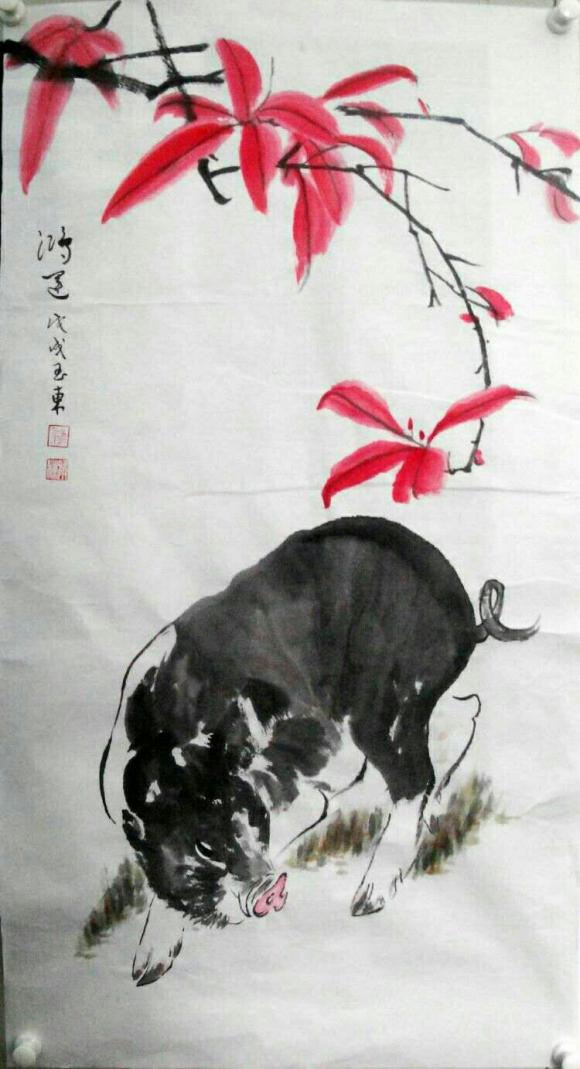 鴻运戊戌玉東